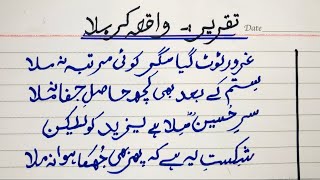 تقریر:۔ واقعہ کربلا
Date
غرور ٹوٹ گیا مگر کوئی مرتبہ نہ ملا
ستم کے بعد بھی کچھ حاصلِ جفا نہ ملا
سرِ حسینؓ ملا ہے یزید کو لیکن
شکست یہ ہے کہ پھر بھی جُھکا ہوا نہ ملا